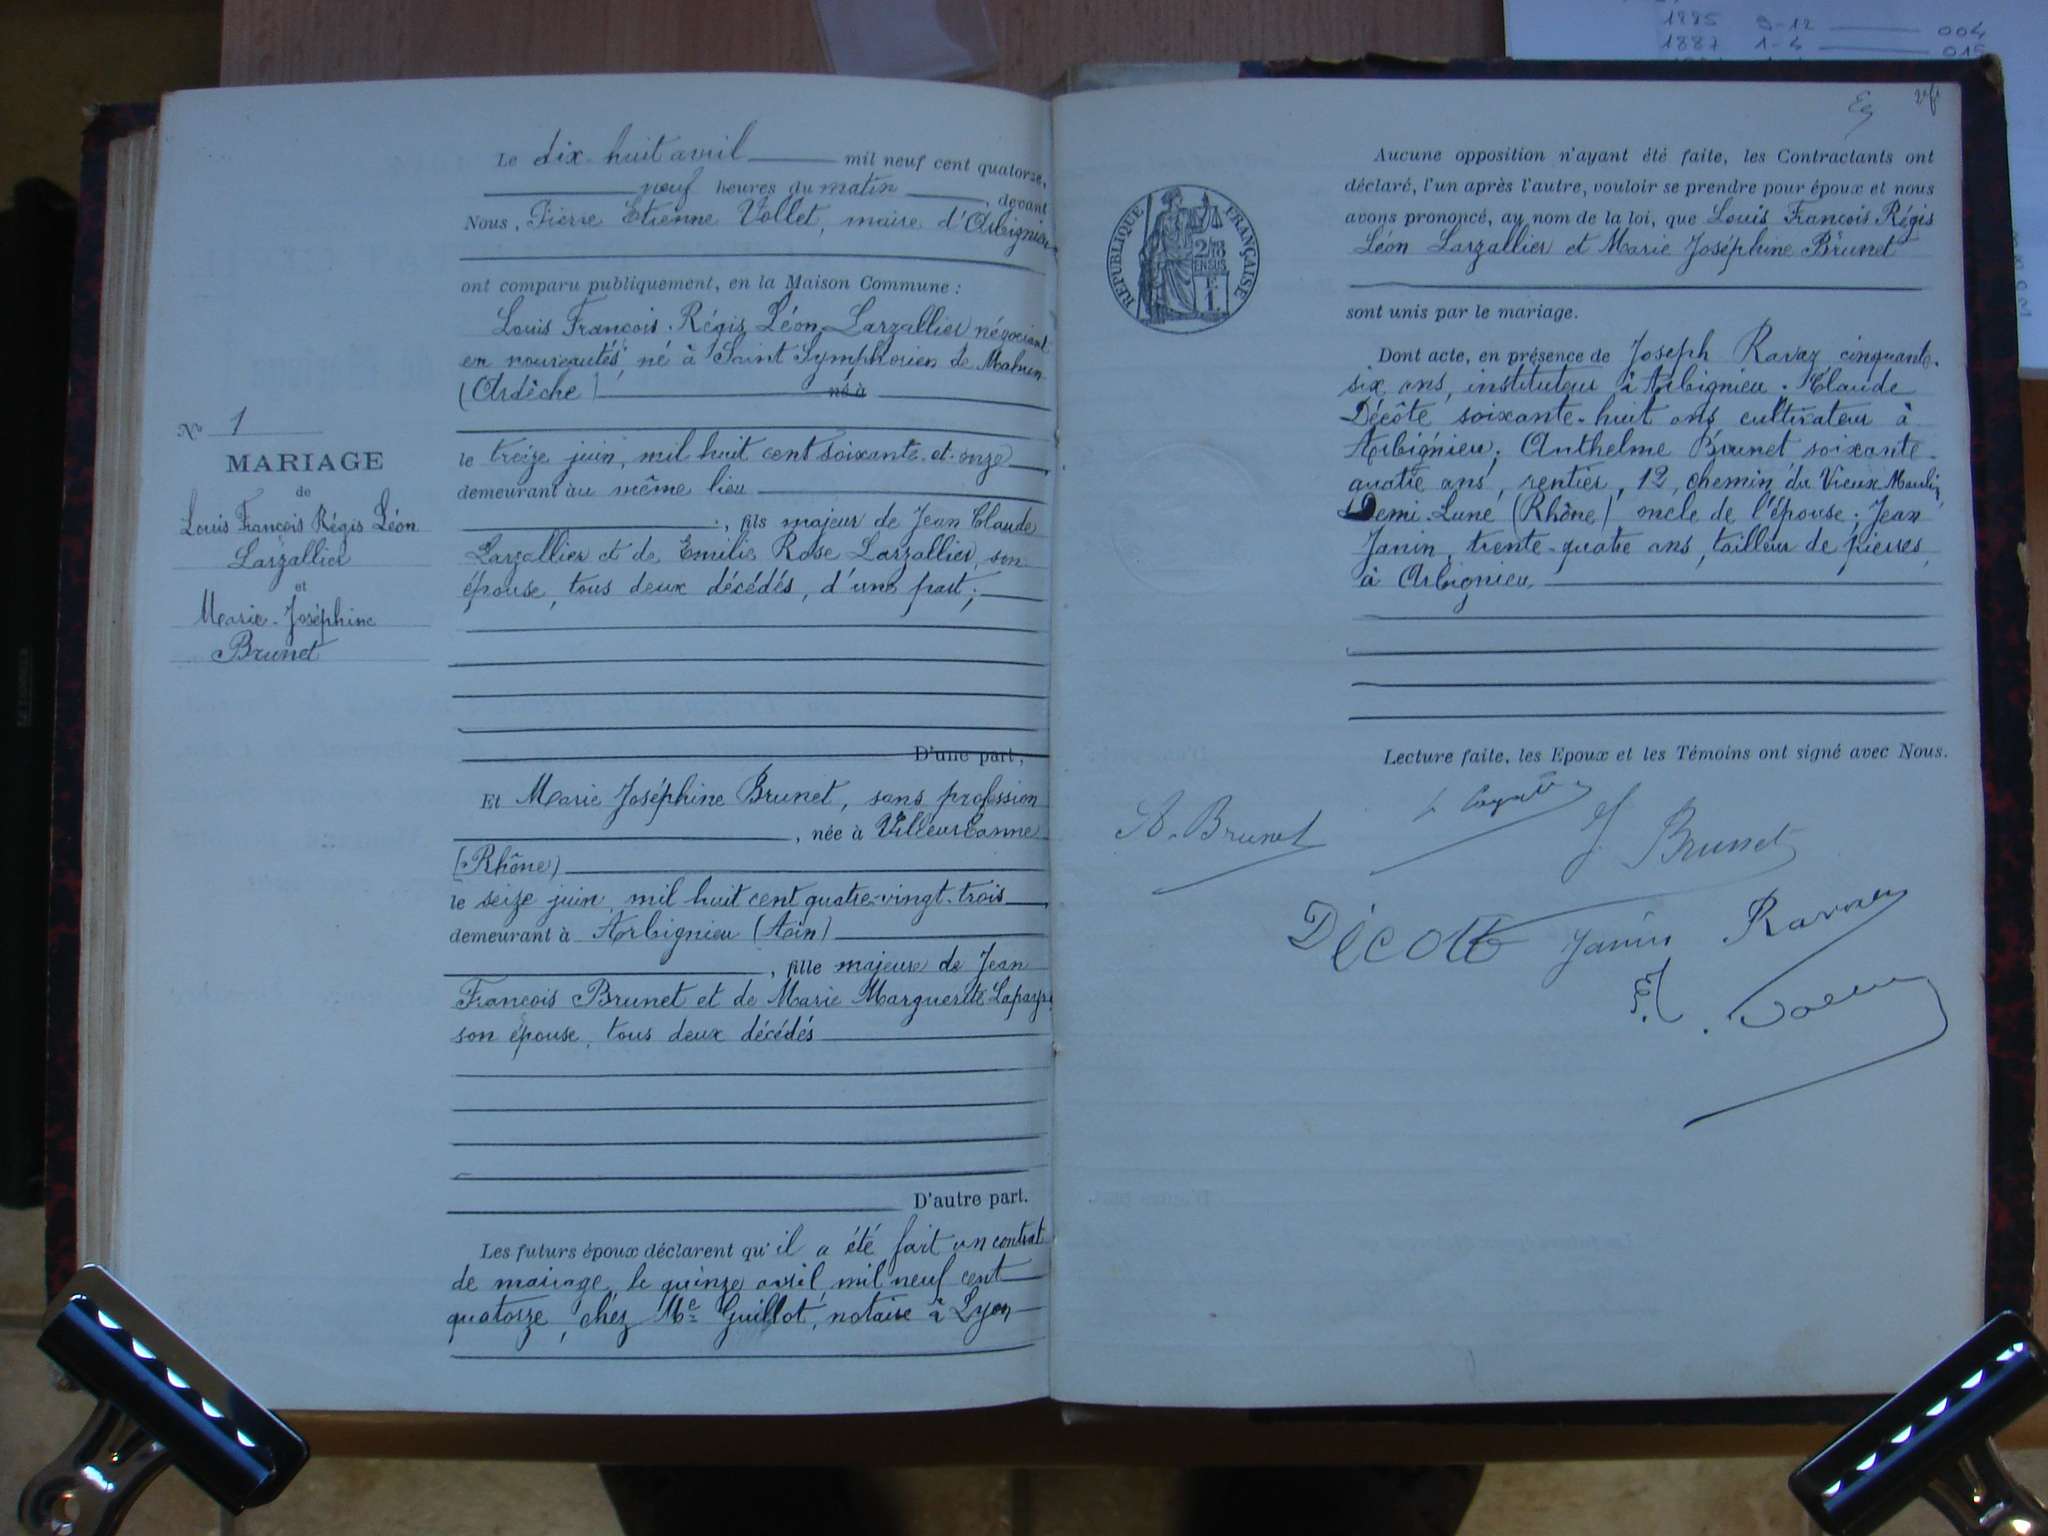 1885 9-12 004
1887 1-4 015
Le dix-huit avril mil neuf cent quatorze,
neuf heures du matin, devant
Nous, Pierre Etienne Vollet, maire d'Arbignieu
ont comparu publiquement, en la Maison Commune :
Louis François Régis Léon Larzallier négociant
en nouveautés, né à Saint Symphorien de Mahun
(Ardêche) né à
le treize juin, mil huit cent soixante-et-onze,
demeurant au même lieu
, fils majeur de Jean Claude
Larzallier et de Emilie Rose Larzallier, son
épouse, tous deux décédés, d'une part ;
D'une part ;
Et Marie Joséphine Brunet, sans profession
, née à Villeurbanne
(Rhône)
le seize juin, mil huit cent quatre-vingt-trois,
demeurant à Arbignieu (Ain)
, fille majeure de Jean
François Brunet et de Marie Marguerite
son épouse, tous deux décédés
D'autre part.
Les futurs époux déclarent qu'il a été fait un contrat
de mariage le quinze avril, mil neuf cent
quatorze, chez Me Guillot, notaire à Lyon
No 1
MARIAGE
de
Louis François Régis Léon
Larzallier
et
Marie-Joséphine
Brunet
RÉPUBLIQUE FRANÇAISE
Aucune opposition n'ayant été faite, les Contractants ont
déclaré, l'un après l'autre, vouloir se prendre pour époux et nous
avons prononcé, au nom de la loi, que Louis François Régis
Léon Larzallier et Marie Joséphine Brunet
sont unis par le mariage.
Dont acte, en présence de Joseph Ravaz cinquante-
six ans, instituteur à Arbignieu ; Claude
Décôte soixante-huit ans, cultivateur à
Arbignieu ; Anthelme Brunet soixante-
quatre ans, rentier, 12, chemin du Vieux Moulin,
Demi-Lune (Rhône) oncle de l'épouse ; Jean
Janin, trente-quatre ans, tailleur de pierres,
à Arbignieu
Lecture faite, les Epoux et les Témoins ont signé avec Nous.
A. Brunet
J Brunet
Décôte Janin Ravaz